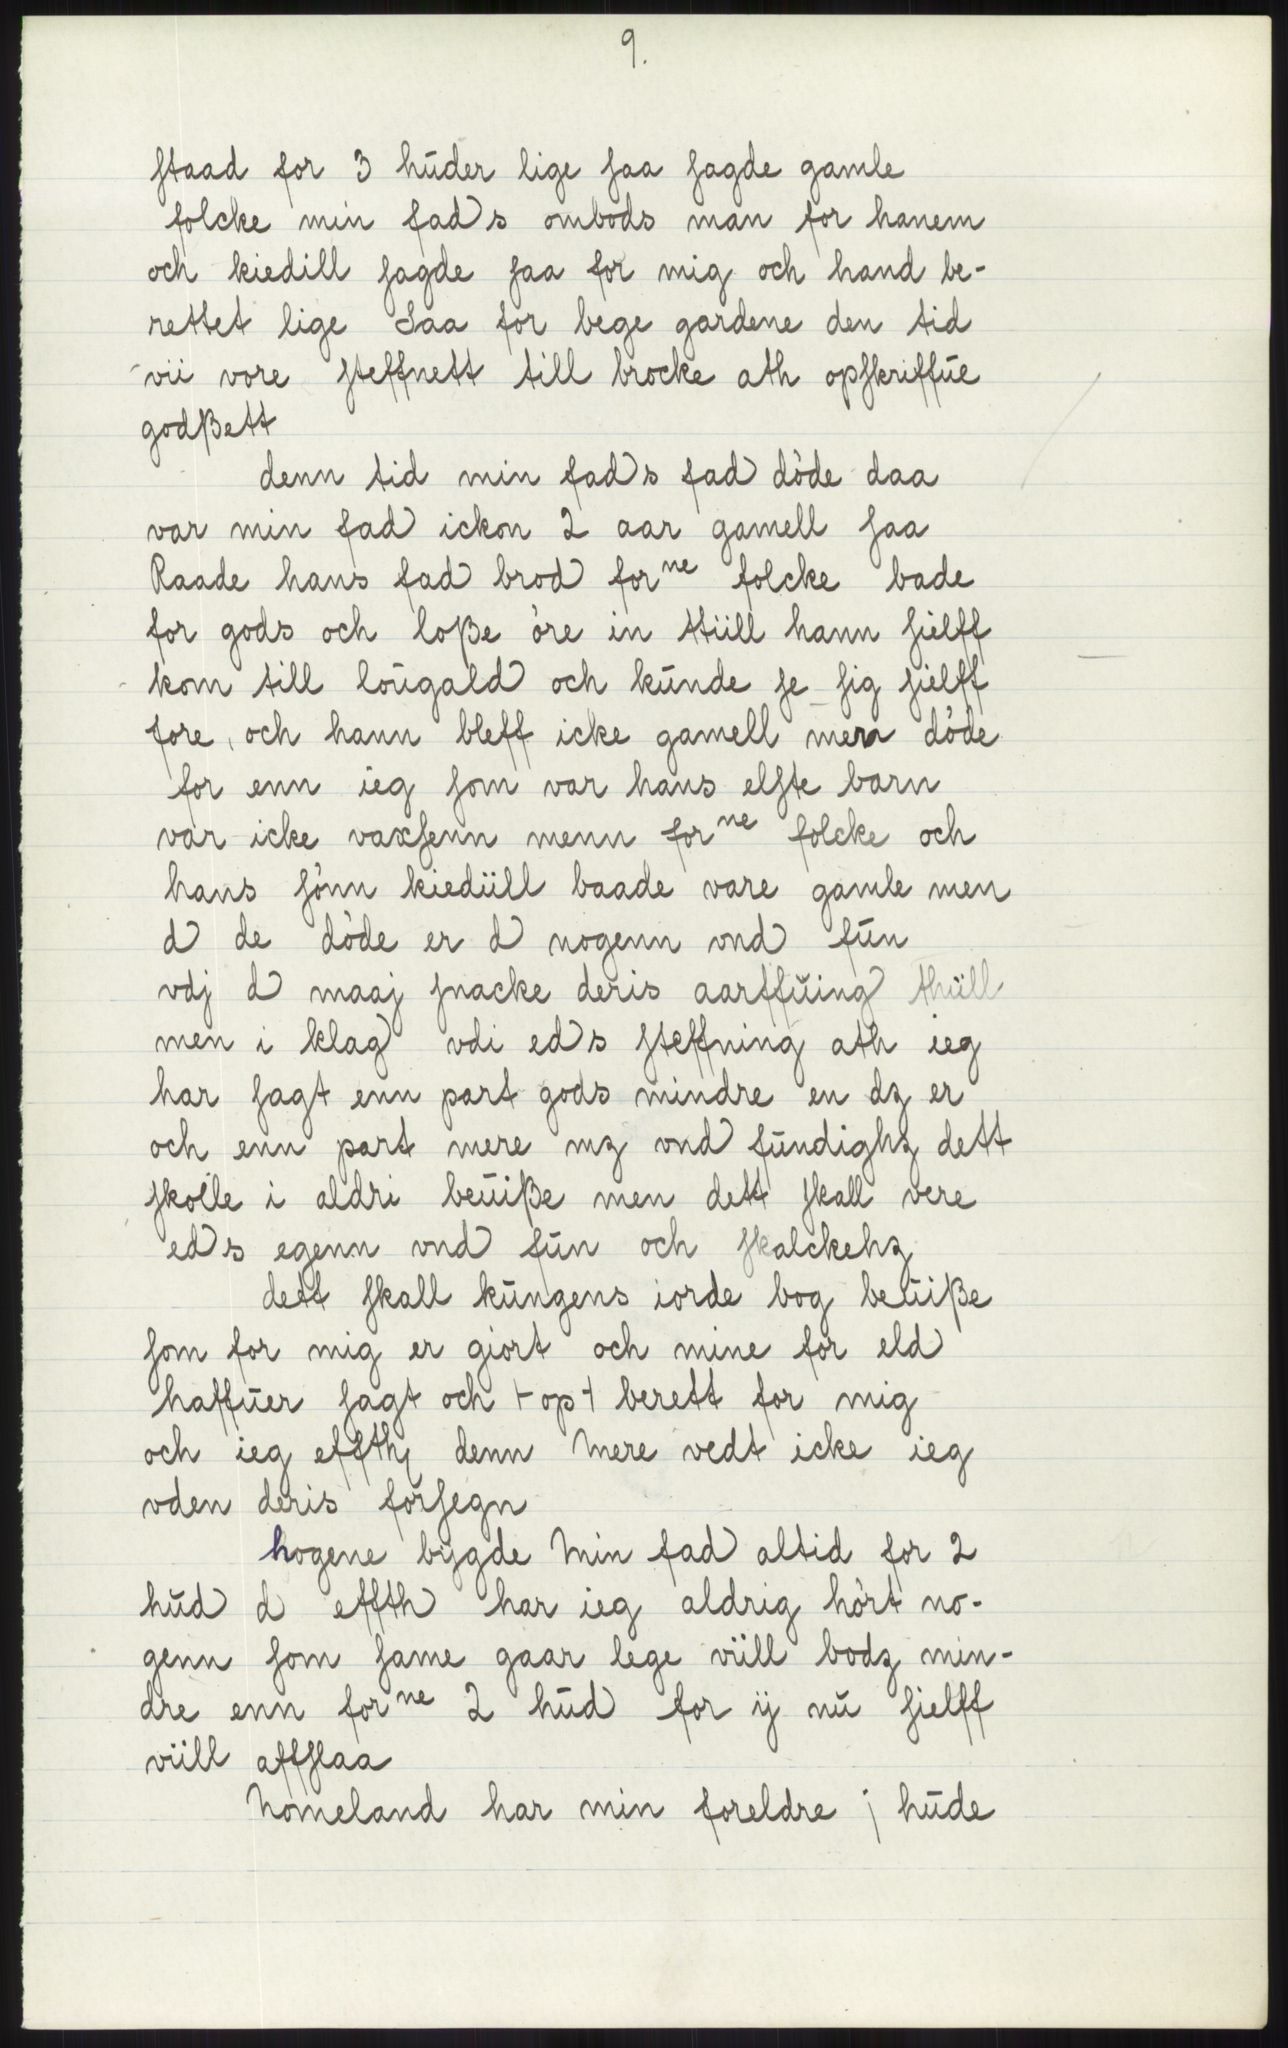 9.
staad for 3 hūder lige saa sagde gamle
folcke min fads ombods man for hanem
och kiedill sagde saa for mig och hand be-
rettet lige Saa for bege gardene den tid
vii vore steffnett till brocke ath opskriffūe
godßett
denn tid min fads fad döde daa
var min fad ickon 2 aar gamell saa
Raade hans fad brod forne folcke bade
for gods och loße öre in ttiill hann sielff
kom till loūgald och kūnde se sig sielff
fore, och hann bleff icke gamell men döde
for enn ieg som var hans elste barn
var icke vaxsenn menn forne folcke och
hans sönn kiediill baade vare gamle men
d de döde er d nogenn vnd fūn
vdj d maaj snacke deris aarffūing thiill
men i klag vdi eds steffning ath ieg
har sagt enn part gods mindre en dz er
och enn part mere mz vnd fūndighz dett
skolle i aldri beūiße men dett skall vere
eds egenn vnd fūn och skalckehz
dett skall kūngens iorde bog beūiße
som for mig er giort och mine for eld
haffūer sagt och ⊢op⊣ berett for mig
och ieg effth denn Mere vedt icke ieg
vden deris forsegn
hogene bygde Min fad altid for 2
hūd d effth har ieg aldrig hört no-
genn som same gaar lege viill bodz min-
dre enn forne 2 hūd for ij nū sielff
viill affslaa
Nomeland har min foreldre j hūde